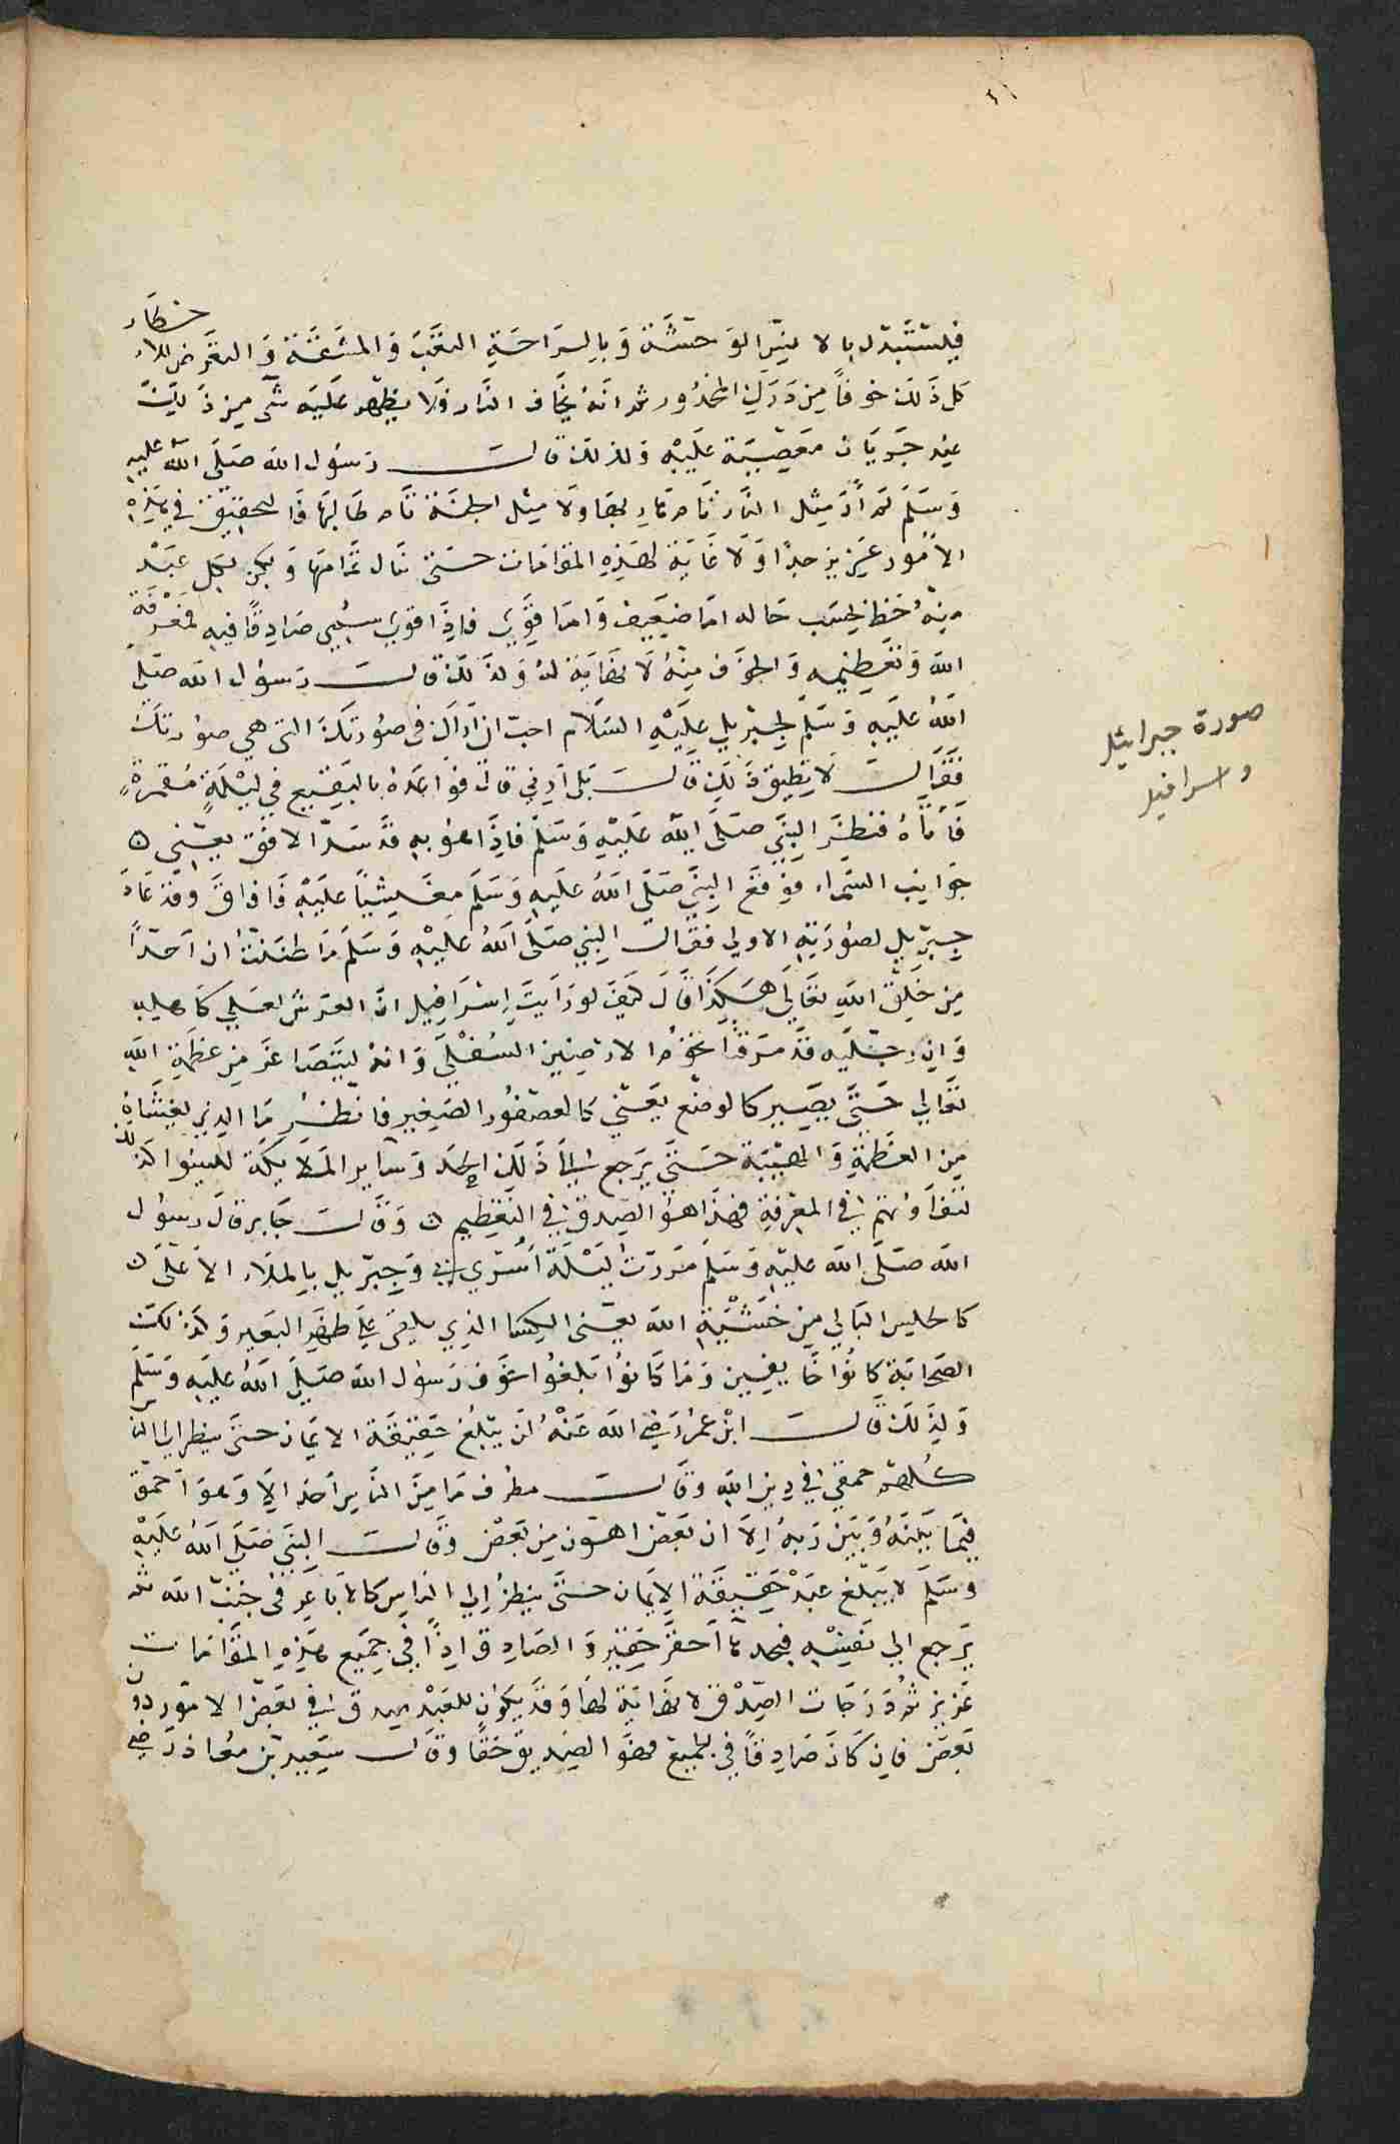 ٤١
فيستبدل بالانس الوحشة وبالراحة التعب والمشقة والتعرض للاخطار
كل ذلك خوفاً من درك المحذور ثم انه يخاف النار ولا يظهر عليه شي من ذلك
عند جريان معصية عليه ولذلك قال رسول الله صلى الله عليه
وسلم لم أر مثل النار نام هاربها ولا مثل الجنة نام طالبها والتحقيق في هذه
الامور عزيز جداً ولا غاية لهذه المقامات حتى تنال تمامها ولكن لكل عبد
منه حظ بحسب حاله اما ضعيف واما قوي فاذا قوي سمي صادقاً فيه فمعرفة
الله وتعظيمه والخوف منه لا نهاية له ولذلك قال رسول الله صلى
الله عليه وسلم لجبريل عليه السلام احب ان أراك في صورتك التي هي صورتك
فقال لا تطيق ذلك قال بل أرني قال فواعده بالبقيع في ليلة مقمرة
فأتاه فنظر النبي صلى الله عليه وسلم فاذا هو به قد سد الافق يعني ه
جوانب السماء فوقع النبي صلى الله عليه وسلم مغشياً عليه فافاق وقد عاد
جبريل لصورته الاولى فقال النبي صلى الله عليه وسلم ما ظننت أن أحداً
من خلق الله تعالى هكذا قال كيف لو رأيت إسرافيل ان العرش لعلى كاهليه
وان رجليه قد مرقتا تخوم الارضين السفلى وانه ليتصاغر من عظمة الله
تعالى حتى يصير كالوضع يعني كالعصفور الصغير فانظر ما الذي يغشاه
من العظمة والهيبة حتى يرجع إلى ذلك الحد وساير الملايكة ليسوا كذلك
لتفاوتهم في المعرفة فهذا هو الصدق في التعظيم ه وقال جابر قال رسول
الله صلى الله عليه وسلم مررت ليلة أسري بي وجبريل بالملاء الاعلى ه
كالحلس البالي من خشية الله يعني الكسا الذي يلقى على ظهر البعير وكذلك
الصحابة كانوا خايفين وما كانوا بلغوا خوف رسول الله صلى الله عليه وسلم
ولذلك قال ابن عمر رضي الله عنه لن تبلغ حقيقة الايمان حتى ينظر الى الناس
كلهم حمقى في دين الله وقال مطرف ما من الناس أحد إلا وهو أحمق
فيما بينه وبين ربه إلا ان بعض اهون من بعض وقال النبي صلى الله عليه
وسلم لا يبلغ عبد حقيقة الايمان حتى ينظر إلى الناس كالاباعر في جنب الله ثم
يرجع الى نفسه فيجدها أحقر حقير والصادق إذاً في جميع هذه المقامات
عزيز ثم درجات الصدق لا نهاية لها وقد يكون للعبد صدق في بعض الامور دون
بعض فان كان صادقاً في الجميع فهو الصديق حقاً وقال سعيد بن معاذ رضي
صورة جبرائيل
واسرافيل